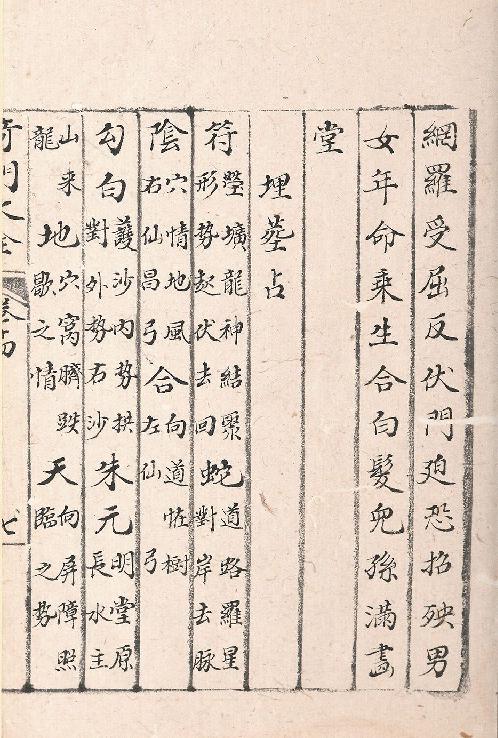 網羅受屈反伏門廹恐招殃男
女年命乘生合白髮兒孫滿畫
堂
埋塟占
符塋壙龍神結聚形勢起伏去回蛇道路羅星對岸去脉
陰穴情地風右仙昌弓合向道恠樹左仙弓
勾白護沙內勢拱對外勢右沙朱元明堂原長水主
山来龍地穴窩臍跌歇之情天向屏障照臨之勢
奇門大全 七